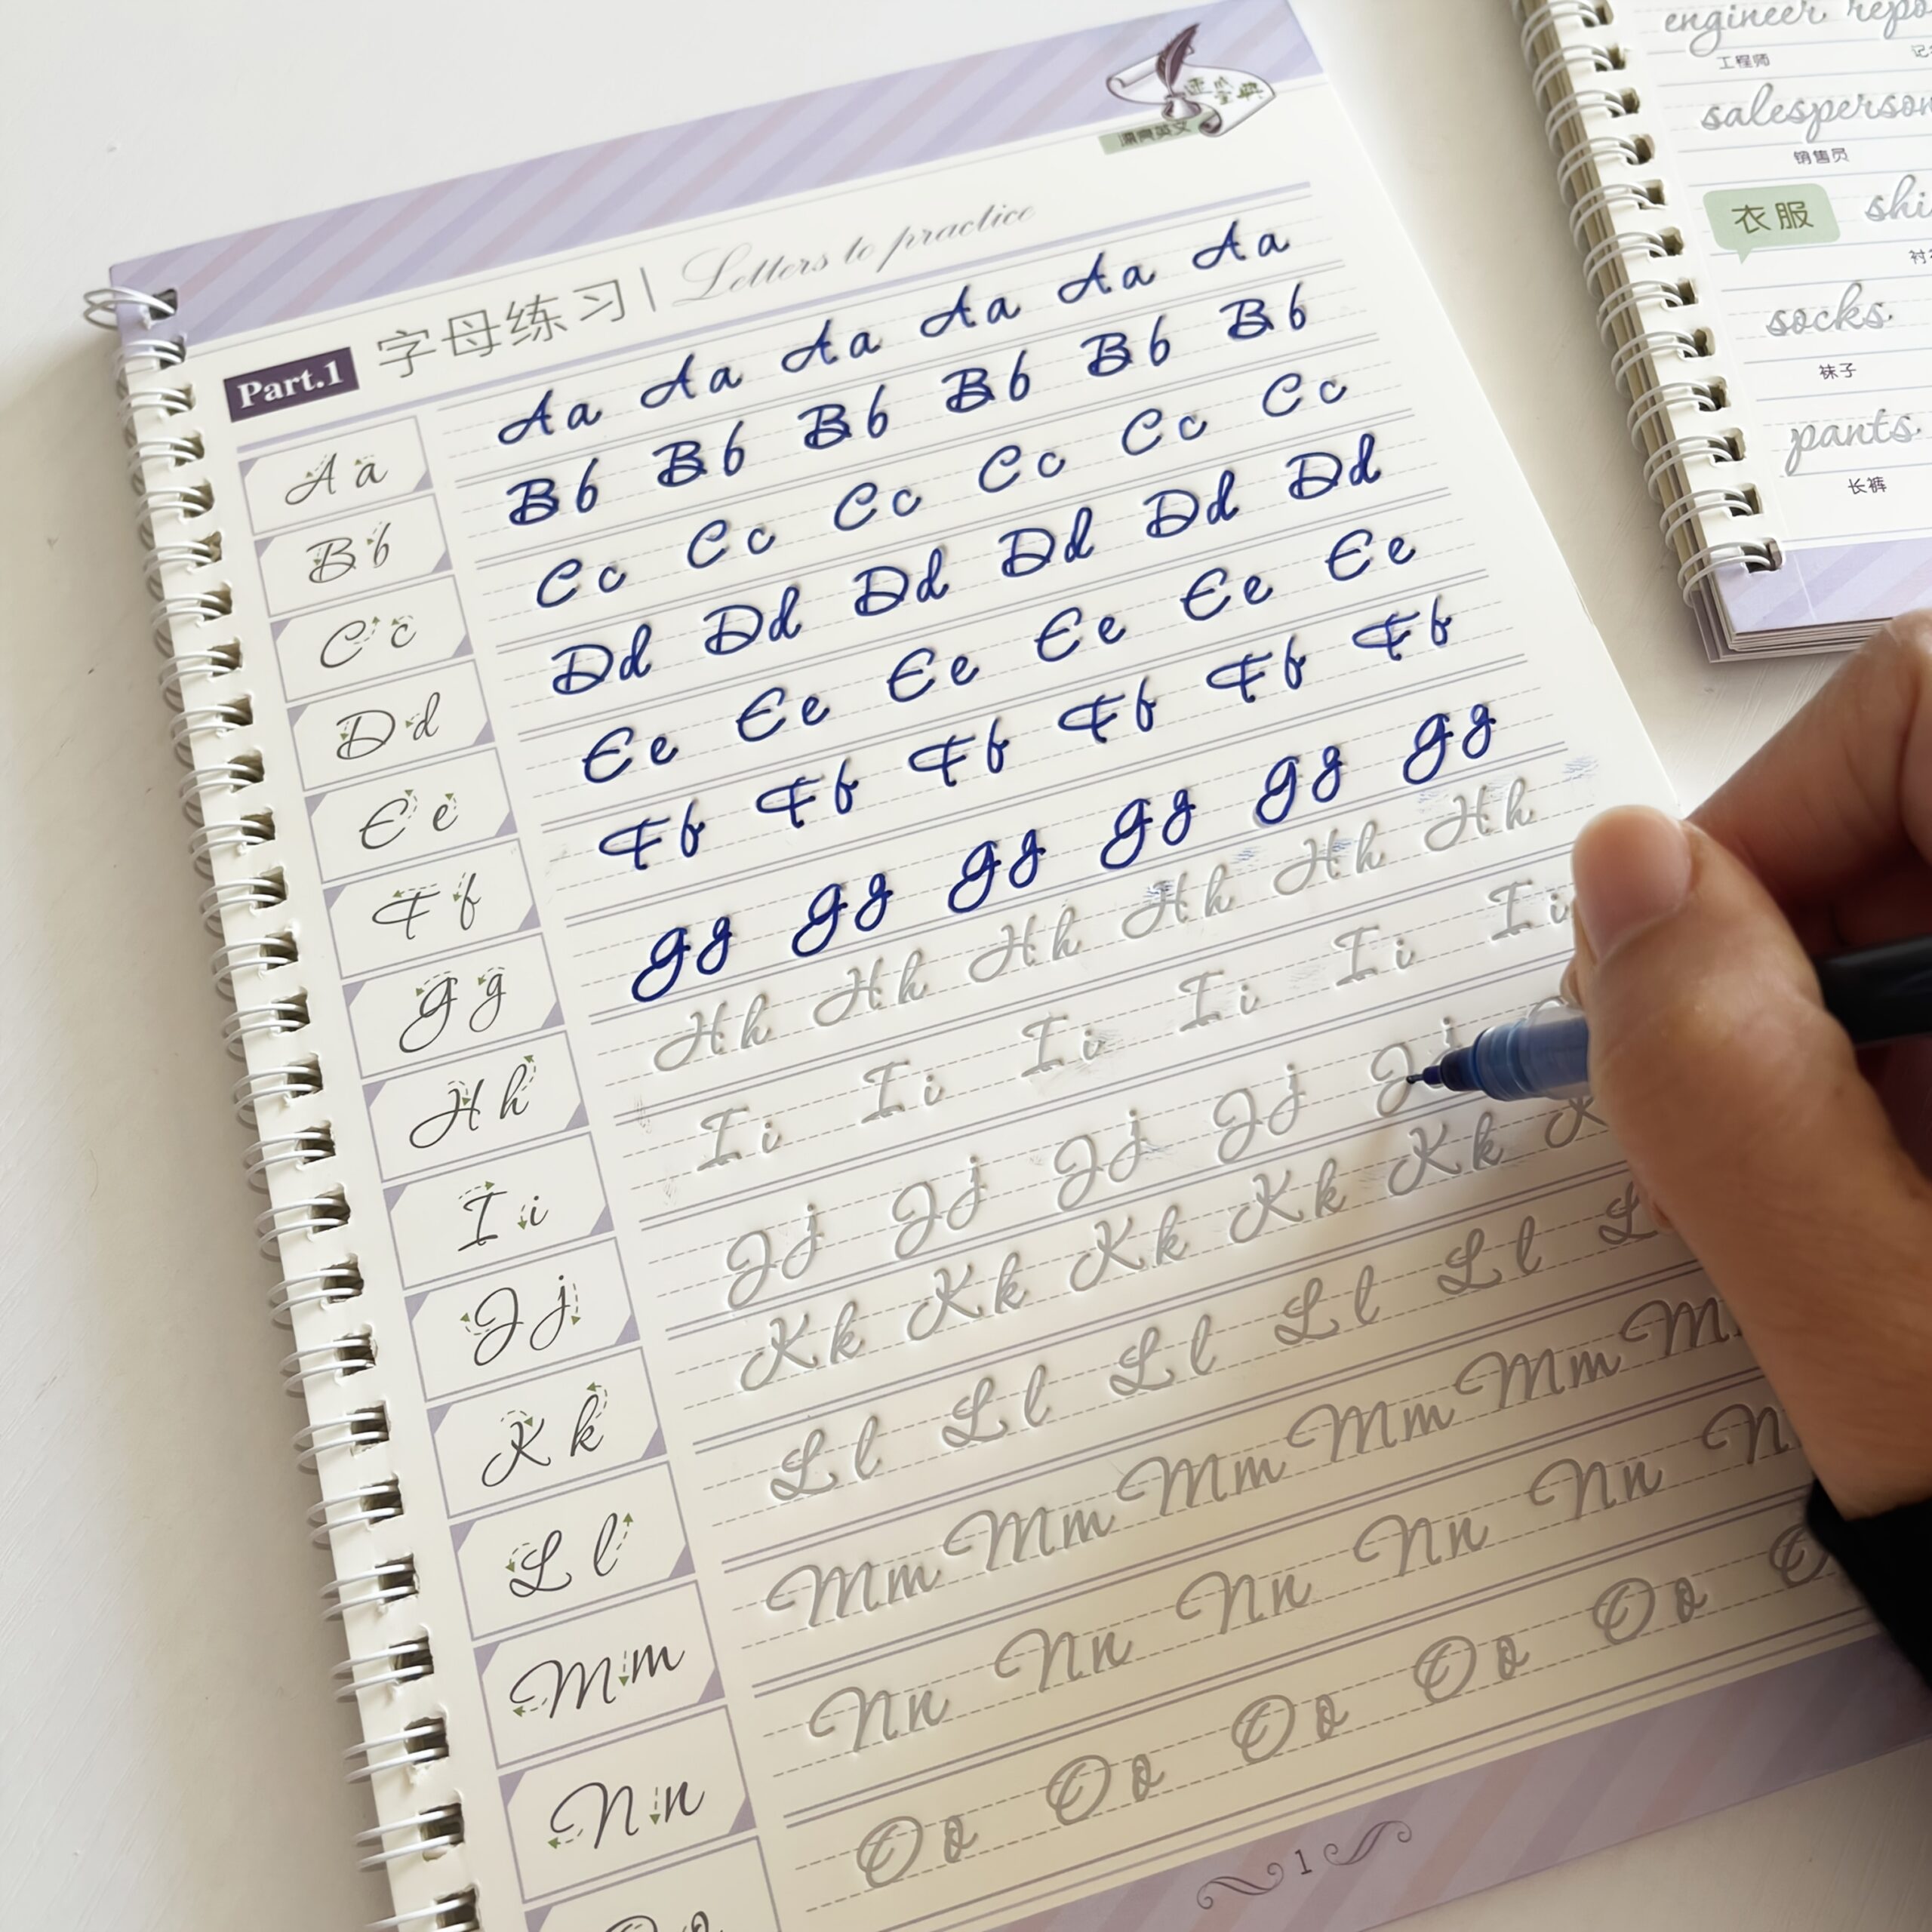 Part.1 字母练习 | Letters to practice
漂亮英文
A a Aa Aa Aa Aa Aa Aa
B b Bb Bb Bb Bb Bb Bb
C c Cc Cc Cc Cc Cc Cc
D d Dd Dd Dd Dd Dd Dd
E e Ee Ee Ee Ee Ee Ee
F f Ff Ff Ff Ff Ff Ff
G g Gg Gg Gg Gg Gg Gg
H h Hh Hh Hh Hh Hh Hh
I i Ii Ii Ii Ii Ii Ii
J j Jj Jj Jj Jj Jj
K k Kk Kk Kk Kk Kk K
L l Ll Ll Ll Ll Ll L
M m Mm Mm Mm Mm Mm M
N n Nn Nn Nn Nn Nn N
Oo Oo Oo Oo Oo O
1
engineer
工程师
salesperson
销售员
衣服
socks
袜子
pants
长裤